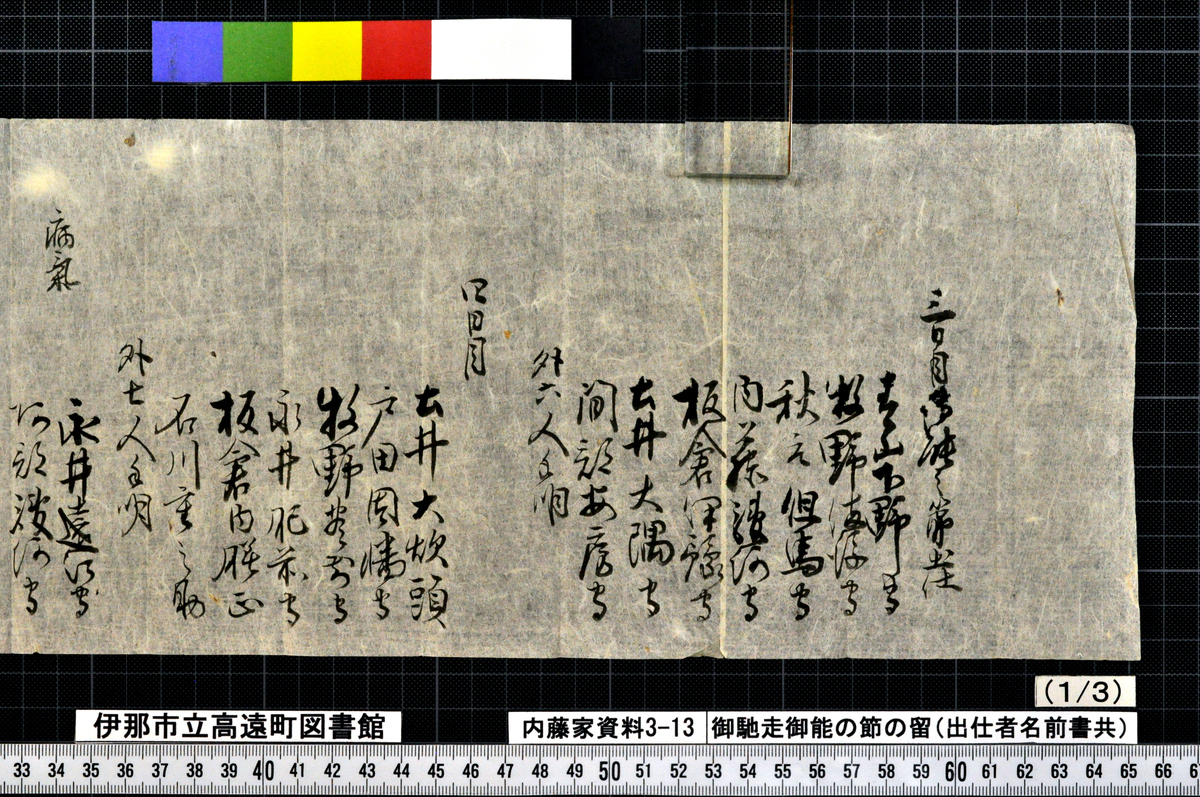 三日目御能之節出仕
青山下野守
牧野備後守
秋元但馬守
内藤駿河守
板倉伊豫守
土井大隅守
間部安房守
外六人
四日目
土井大炊頭
戸田因幡守
牧野豊前守
永井肥前守
板倉内膳正
石川重之助
外七人
永井遠江守
阿部駿河守
病氣
(1/3)
伊那市立高遠町図書館
内藤家資料3-13
御馳走御能の節の留(出仕者名前書共)
33 34 35 36 37 38 39 40 41 42 43 44 45 46 47 48 49 50 51 52 53 54 55 56 57 58 59 60 61 62 63 64 65 66